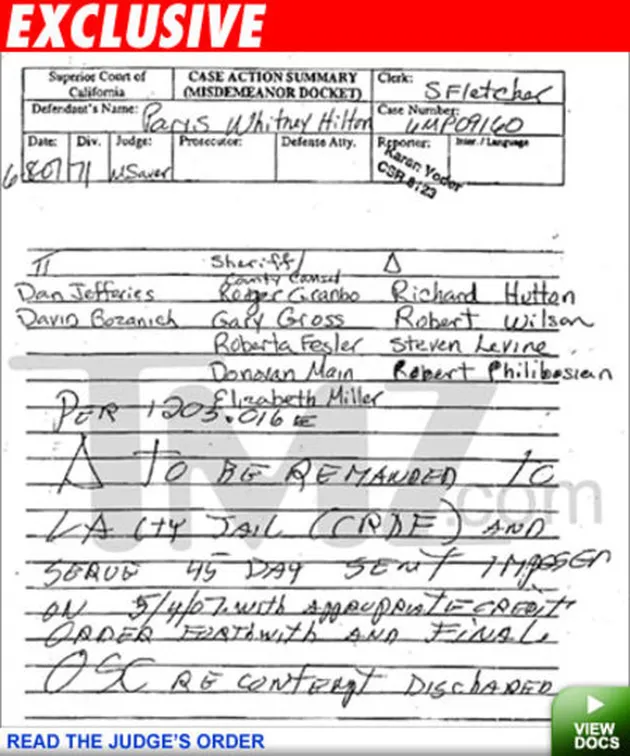 EXCLUSIVE
Superior Court of California
CASE ACTION SUMMARY (MISDEMEANOR DOCKET)
Clerk: S Fletcher
Defendant's Name: Paris Whitney Hilton
Case Number: 6MP09160
Date: 6 8 07
Div. 71
Judge: M Sauer
Prosecutor:
Defense Atty.
Reporter: Karen Yoder CSR 8123
Inter. / Language
π Sheriff/ Δ
County Counsel
Dan Jefferies Roger Granbo Richard Hutton
David Bozanich Gary Gross Robert Wilson
Roberta Fesler Steven Levine
Donovan Main Robert Philibosian
Elizabeth Miller
PER 1203.016 E
Δ TO BE REMANDED TO
LA CTY JAIL (CRDF) AND
SERVE 45 DAY SENT IMPOSED
ON 5/4/07 with APPROPRIATE CREDIT
ORDER FORTHWITH AND FINAL
OSC RE CONTEMPT DISCHARED
TMZ.com
READ THE JUDGE'S ORDER
VIEW DOCS